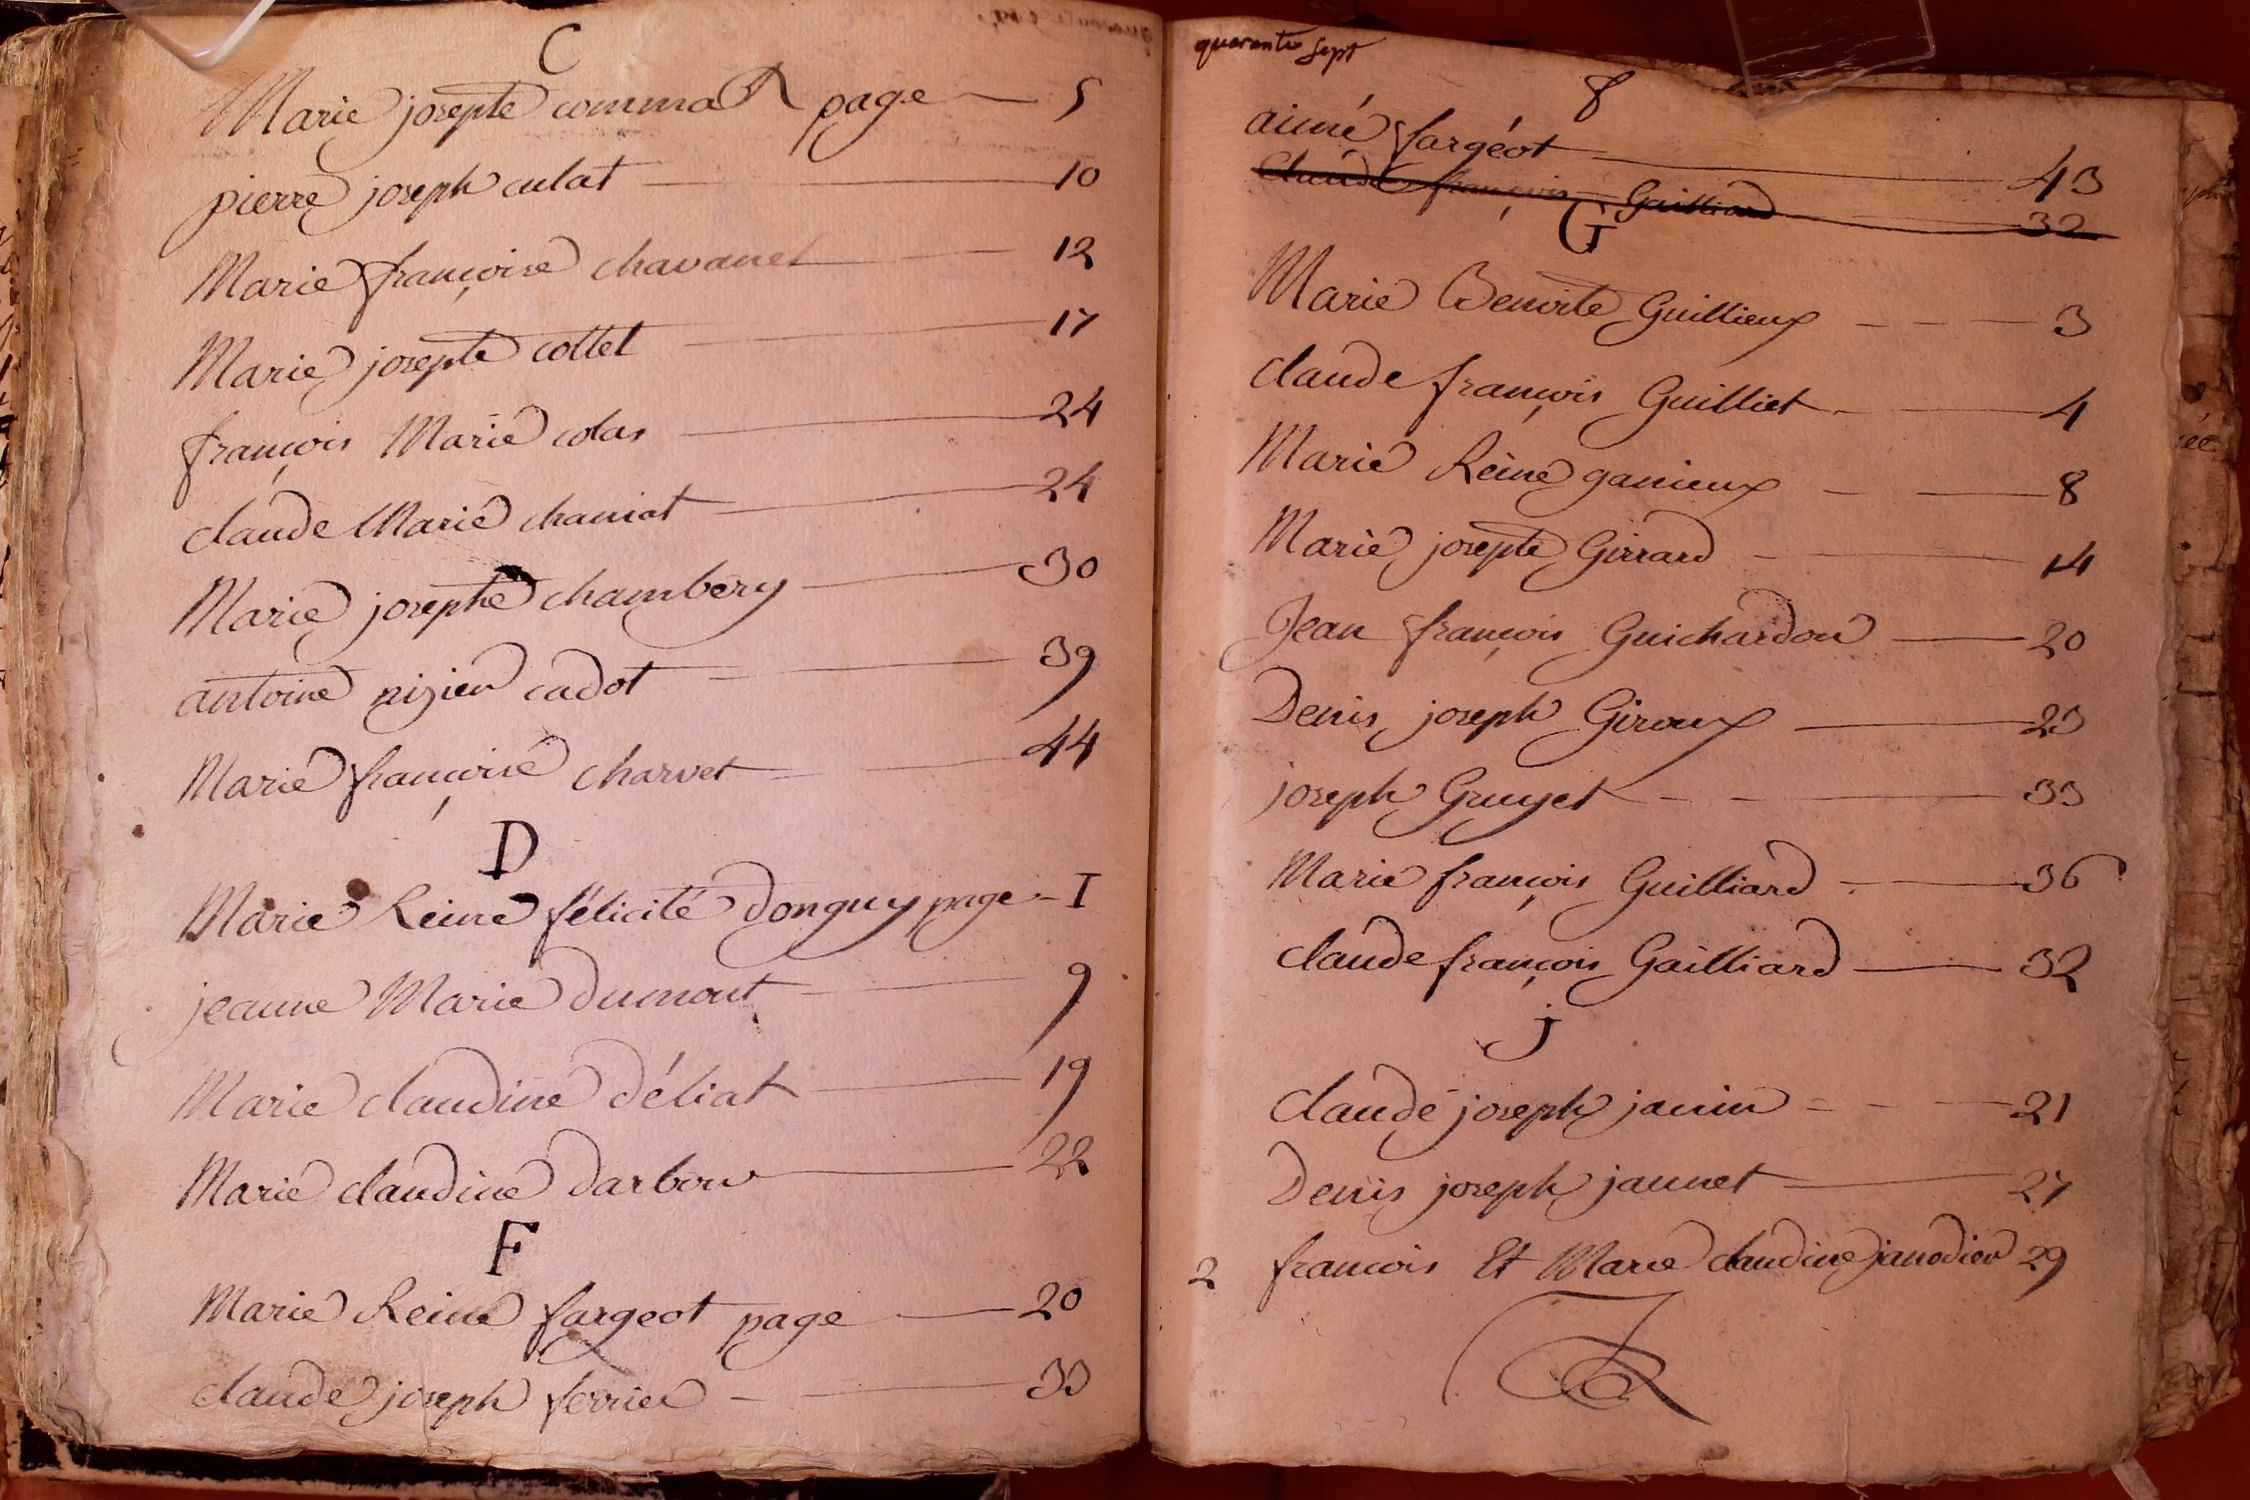 C
Marie josephe commaR page 5
pierre joseph culat 10
Marie françoise chavanet 12
Marie josephe cottet 17
françois Marie colas 24
claude Marie chaniot 24
Marie josephe chambery 30
antoine nizier cadot 39
Marie françoise charvet 44
D
Marie Reine félicité Donguy page I
jeanne Marie Dumont 9
Marie claudine Déliat 19
Marie claudine Darbon 22
F
Marie Reine fargeot page 20
claude joseph ferrier 33
quarante sept
8
aimé fargéot 43
Claude françois Guilliard 32
G
Marie Benoite Guillieux 3
claude françois Guilliet 4
Marie Reine ganieux 8
Marie josephe Girrard 14
Jean françois Guichardon 20
Denis joseph Giroux 23
joseph Gruyet 33
Marie françois Guilliard 36
claude françois Gailliard 32
j
claude joseph janin 21
Denis joseph jaunet 27
2 francois Et Marie claudine janodier 29